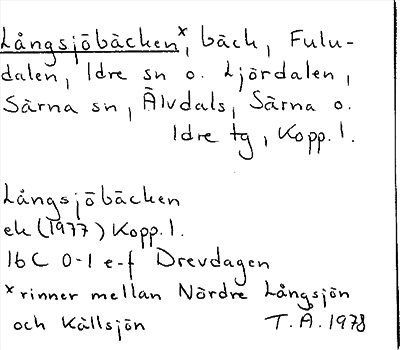 Långsjöbäcken×, bäck, Fulu-
dalen, Idre sn o. Ljördalen,
Särna sn, Älvdals, Särna o.
Idre tg, Kopp. l.
Långsjöbäcken
ek (1977) Kopp. l.
16 C 0-1 e-f Drevdagen
× rinner mellan Nördre Långsjön
och Källsjön T.Å. 1978